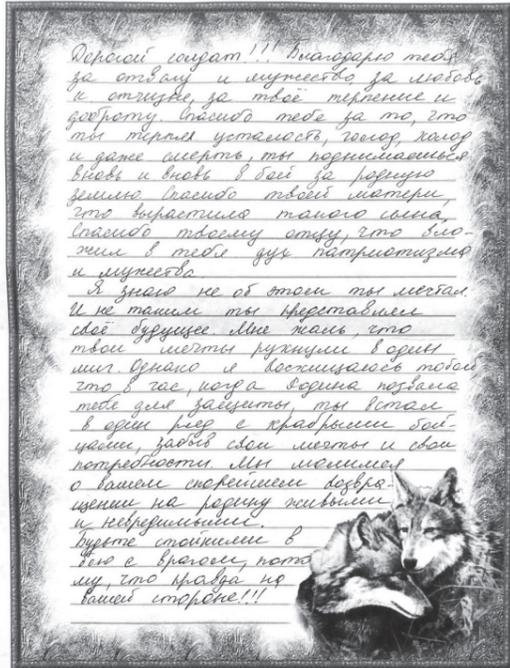 Дорогой солдат!!! Благодарю тебя
за отвагу и мужество за любовь
к отчизне, за твоё терпение и
доброту. Спасибо тебе за то, что
ты терпя усталость, голод, холод
и даже смерть, ты поднимаешься
вновь и вновь в бой за родную
землю. Спасибо твоей матери,
что вырастила такого сына,
Спасибо твоему отцу, что вло-
жил в тебя дух патриотизма
и мужества.
Я знаю не об этом ты мечтал.
И не таким ты представлял
своё будущее. Мне жаль, что
твои мечты рухнули в один
миг. Однако я восхищаюсь тобой
что в час, когда Родина позвала
тебя для защиты, ты встал
в один ряд с храбрыми бой-
цами, забыв свои мечты и свои
потребности. Мы молимся
о вашем скорейшем возвра-
щении на родину живыми
и невредимыми.
Будьте стойкими в
бою с врагом, пото
му, что правда на
вашей стороне!!!